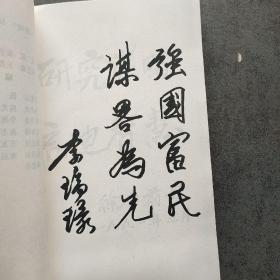 強國富民
謀畧為先
李瑞環